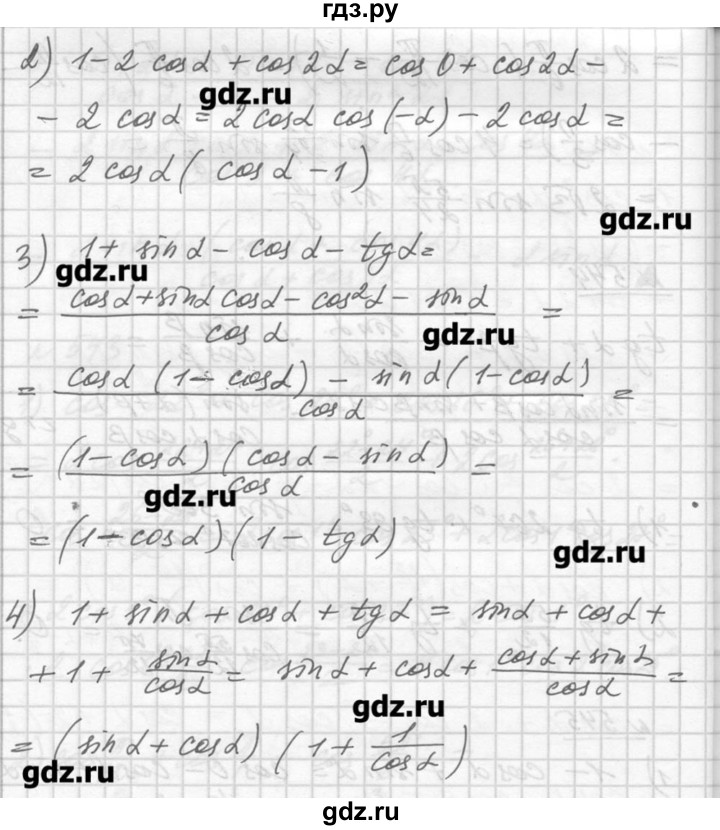 гдз.ру
2) 1 - 2 cos α + cos 2α = cos 0 + cos 2α -
gdz.ru
- 2 cos α = 2 cos α cos (-α) - 2 cos α =
= 2 cos α ( cos α - 1)
gdz.ru
3) 1 + sin α - cos α - tg α =
gdz.ru
= (cos α + sin α cos α - cos²α - sin α) / cos α =
gdz.ru
= (cos α (1 - cos α) - sin α (1 - cos α)) / cos α =
= ((1 - cos α) (cos α - sin α)) / cos α =
gdz.ru
= (1 - cos α) (1 - tg α)
gdz.ru
4) 1 + sin α + cos α + tg α = sin α + cos α +
+ 1 + sin α / cos α = sin α + cos α + (cos α + sin α) / cos α =
gdz.ru
= (sin α + cos α) (1 + 1 / cos α)
gdz.ru
gdz.ru